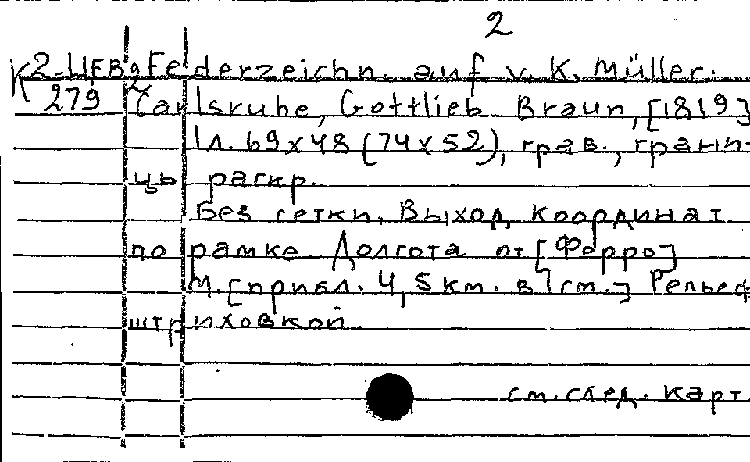 2
K2-ЦЕВ2 Federzeichn. auf v. K. Müller.
279 Carlsruhe, Gottlieb Braun, [1819]
1л. 69x48 (74x52), грав., грани-
цы раскр.
Без сетки, Выход координат
по рамке Долгота от [Ферро]
М. [прибл. 4,5км. в 1см.] Рельеф
штриховкой.
см. след. карт